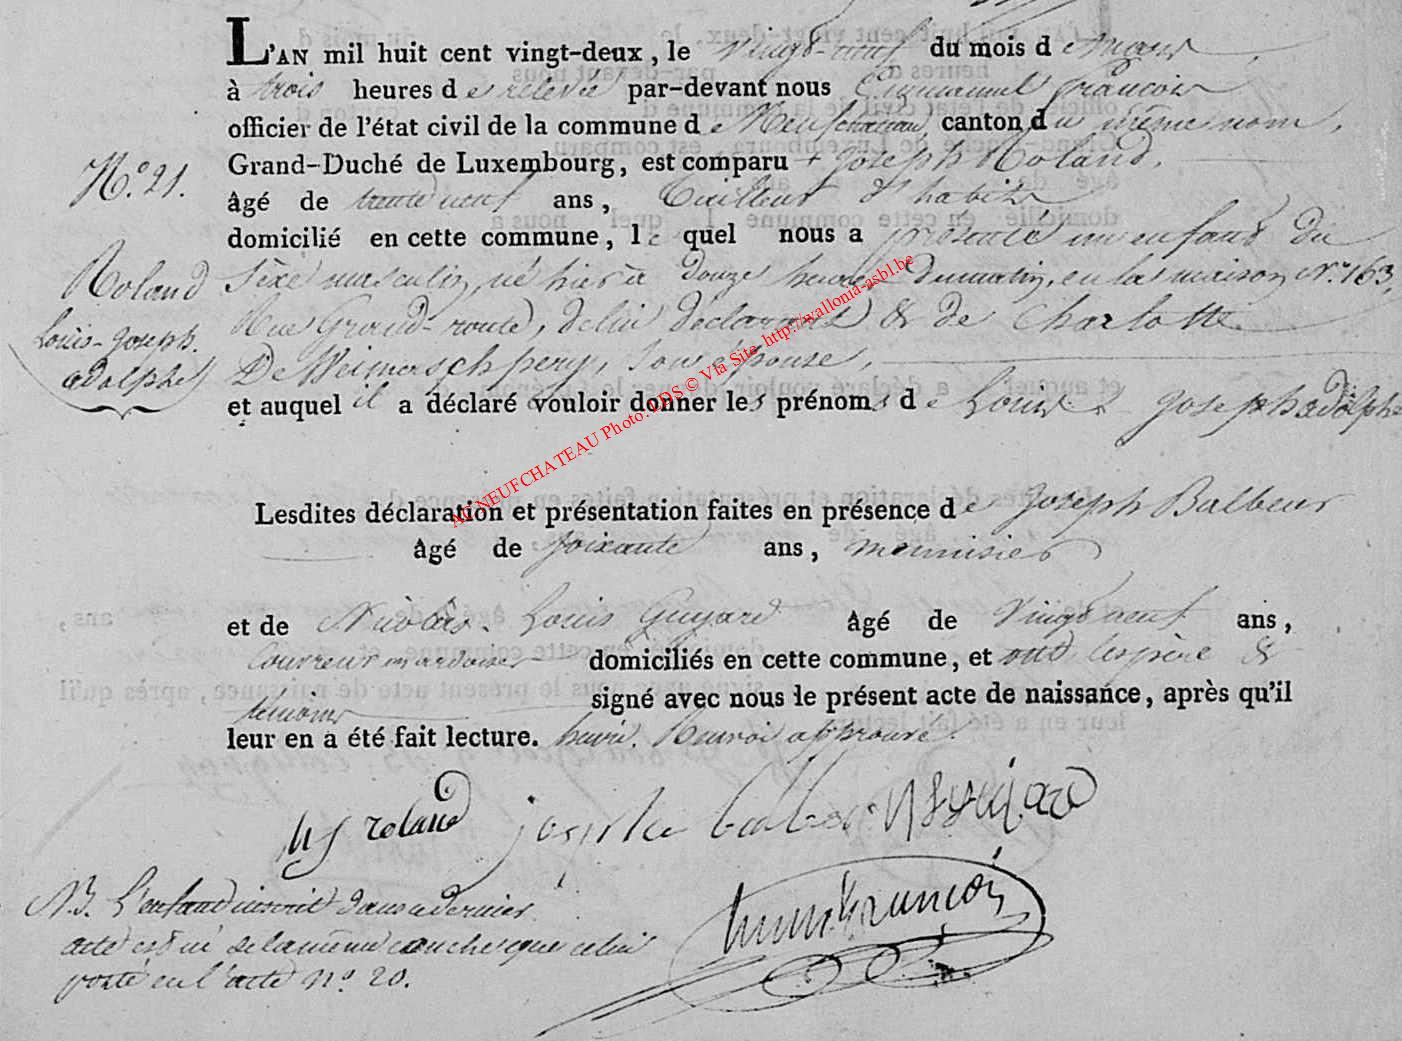 L'AN mil huit cent vingt-deux, le vingt-neuf du mois de mars
à trois heures de relevée par-devant nous Emmanuel françois
officier de l'état civil de la commune de Neufchateau, canton du même nom,
Grand-Duché de Luxembourg, est comparu Joseph Roland,
N.° 21.
âgé de trente neuf ans, Tailleur d'habits
domicilié en cette commune, le quel nous a présenté un enfant du
Roland
Louis-Joseph.
adolphe
Sexe masculin, né hier à douze heures du matin, en la maison N.° 163,
Rue Grand-route, de lui déclarant & de Charlotte
De Weimerschpery, son épouse,
et auquel il a déclaré vouloir donner les prénoms de Louis Joseph adolphe
AC NEUFCHATEAU Photo: LDS © Via Site http://wallonia-asbl.be
Lesdites déclaration et présentation faites en présence de Joseph Balbeur
âgé de soixante ans, menuisier
et de Nicolas Louis Guyard âgé de vingt neuf ans,
Couvreur en ardoises domiciliés en cette commune, et ont les père &
témoins signé avec nous le présent acte de naissance, après qu'il
leur en a été fait lecture. Renvoi approuvé.
roland joseph balbeur N L Guijard
françois
N.B. L'enfant inscrit dans ce dernier
acte est né de la même couche que celui
porté en l'acte N° 20.